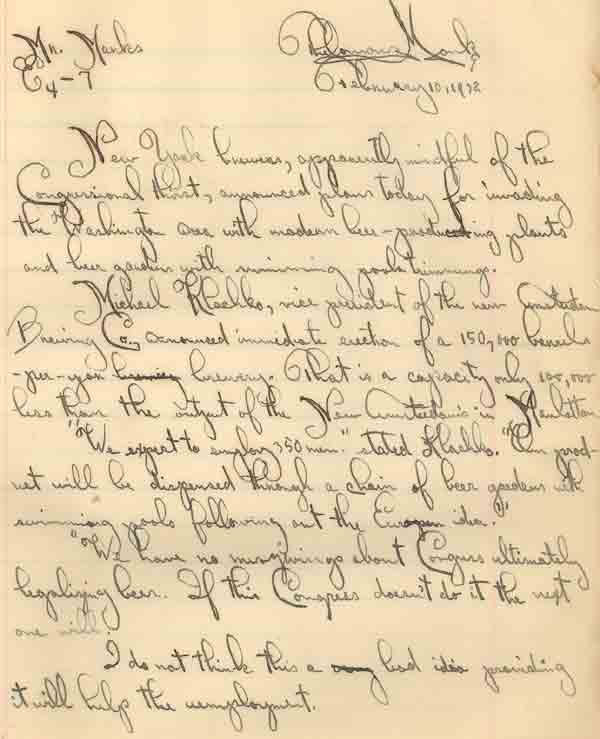 Mr. Manks
E 4-7
Thelonious Monk
February 10, 1932
New York brewers, apparently mindful of the
Congressional thirst, announced plans today for invading
the Washington area with modern beer-producing plants
and beer gardens with swimming pools trimmings.
Michael Klachko, vice president of the new Amsterdam
Brewing Co., announced immediate erection of a 150,000 barrels
-per-year brewery. That is a capacity only 100,000
less than the output of the New Amsterdam's in Manhattan.
"We expect to employ 350 men." stated Klachko. "Our prod-
uct will be dispensed through a chain of beer gardens with
swimming pools following out the European idea."
"We have no misgivings about Congress ultimately
legalizing beer. If this Congress doesn't do it the next
one will.
I do not think this a bad idea providing
it will help the unemployment.